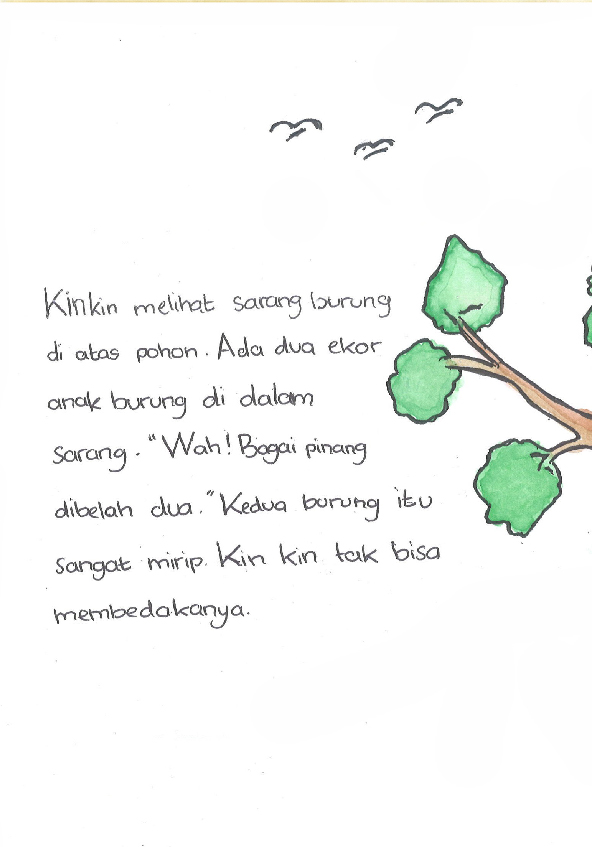 Kinkin melihat sarang burung
di atas pohon. Ada dua ekor
anak burung di dalam
sarang. "Wah! Bagai pinang
dibelah dua." Kedua burung itu
sangat mirip. Kin kin tak bisa
membedakanya.